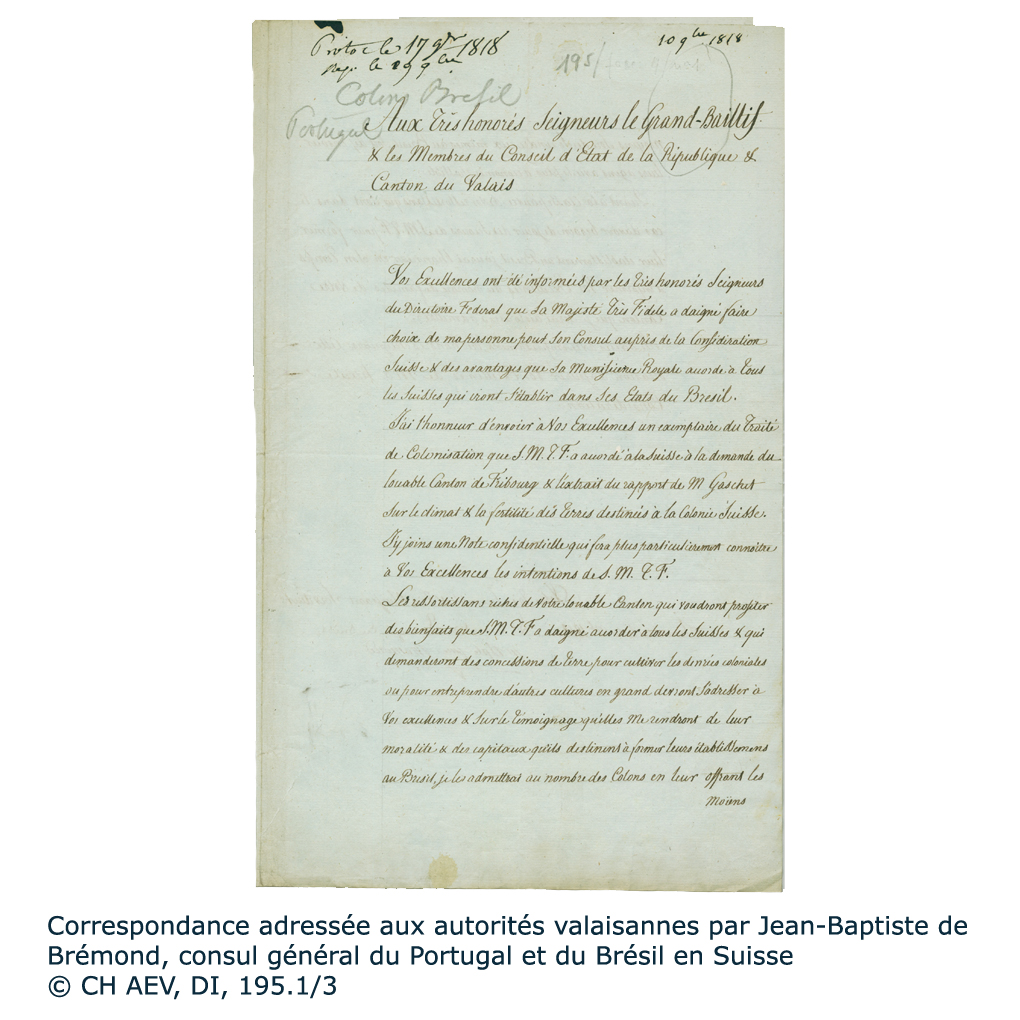 Protoc le 17 9bre 1818
Rep. le 19 9bre
10 9bre 1818
195/
Colonie Bresil
Portugal
Aux Très honorés Seigneurs le Grand-Baillif
& les Membres du Conseil d'Etat de la République &
Canton du Valais
Vos Excellences ont été informées par les très honorés Seigneurs
du Directoire Féderal que Sa Majesté Très Fidele a daigné faire
choix de ma personne pour Son Consul auprès de la Confédération
Suisse & des avantages que Sa Munificence Royale accorde à tous
les Suisses qui iront s'établir dans Ses Etats du Bresil.
J'ai l'honneur d'envoier à Vos Excellences un exemplaire du Traité
de Colonisation que S. M. T. F. a accordé à la Suisse à la demande du
louable Canton de Fribourg & l'extrait du rapport de M Gachet
sur le climat & la fertilité des terres destinées à la Colonie Suisse.
J'y joins une Note confidentielle qui fera plus particulièrement connoître
à Vos Excellences les intentions de S. M. T. F.
Les ressortissans riches de Votre louable Canton qui voudront profiter
des bienfaits que S. M. T. F a daigné accorder à tous les Suisses & qui
demanderont des concessions de terre pour cultiver les denrées coloniales
ou pour entreprendre d'autres cultures en grand devront s'adresser à
Vos excellences & sur le témoignage qu'elles me rendront de leur
moralité & des capitaux qu'ils destinent à former leurs établissemens
au Bresil, je les admettrai au nombre des Colons en leur offrant les
moïens
Correspondance adressée aux autorités valaisannes par Jean-Baptiste de
Brémond, consul général du Portugal et du Brésil en Suisse
© CH AEV, DI, 195.1/3